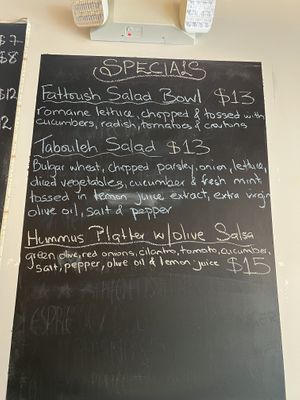 $7
$8
$12
12
SPECIALS
Fattoush Salad Bowl $13
romaine lettuce, chopped & tossed with
cucumbers, radish, tomatoes & croutons
Tabouleh Salad $13
Bulgar wheat, chopped parsley, onion, lettuce,
diced vegetables, cucumber & fresh mint
tossed in lemon juice extract, extra virgin
olive oil, salt & pepper
Hummus Platter w/olive Salsa
green olive, red onions, cilantro, tomato, cucumber,
salt, pepper, olive oil & lemon juice $15